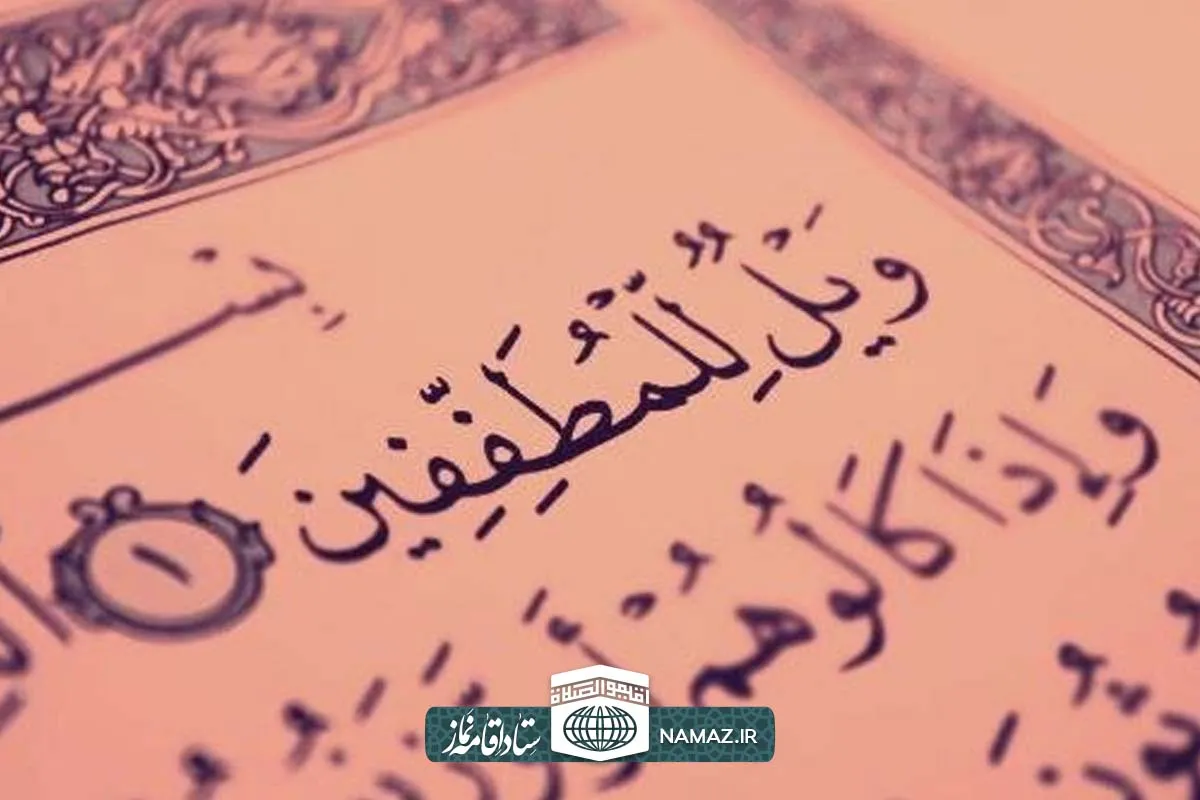 بِسْـ
وَيْلٌ لِلْمُطَفِّفِينَ ١
وَإِذَا كَالُوهُمْ أَوْ
أقيموا الصلاة
ستاد اقامه نماز
NAMAZ.IR